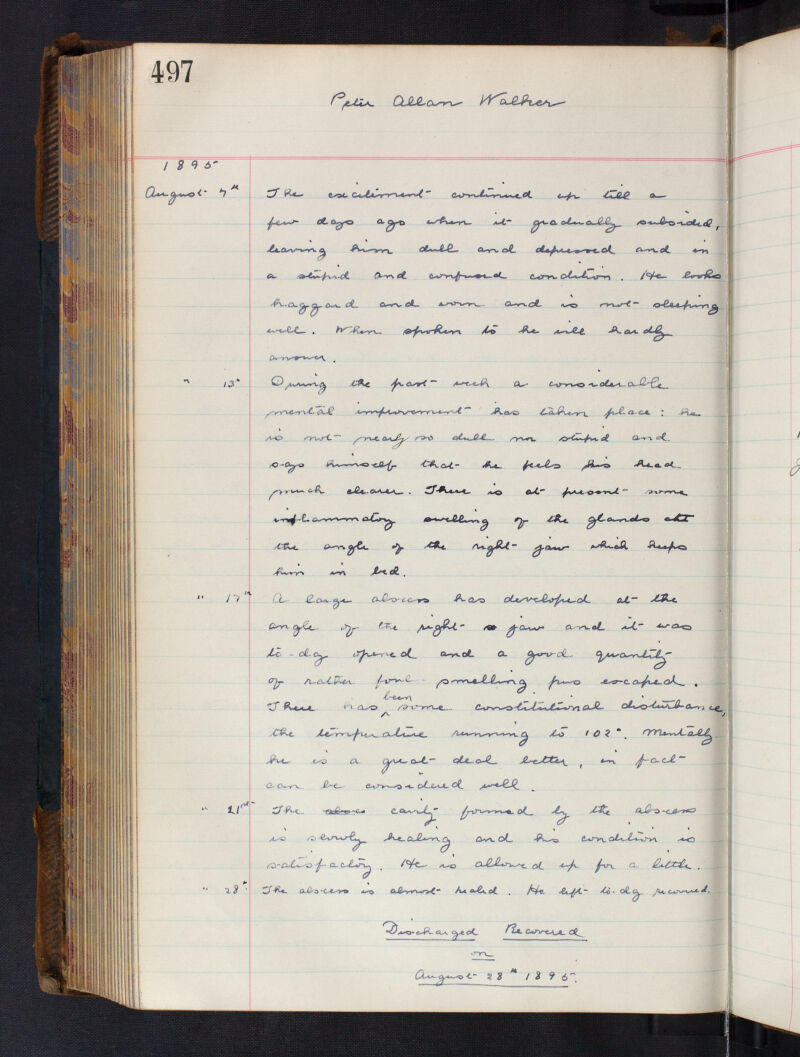 497
Peter Allan Walker
1895
August 7th The excitement continued up till a
few days ago when it gradually subsided,
leaving him dull and depressed and in
a stupid and confused condition. He looks
haggard and worn and is not sleeping
well. When spoken to he will hardly
answer.
" 13th During the past week a considerable
mental improvement has taken place: he
is not nearly so dull nor stupid and
says himself that he feels his head
much clearer. There is at present some
inflammatory swelling of the glands at
the angle of the right jaw which keeps
him in bed.
" 17th A large abscess has developed at the
angle of the right jaw and it was
to-day opened and a good quantity
of rather foul smelling pus escaped.
There has been some constitutional disturbance,
the temperature running to 102°. Mentally
he is a great deal better, in fact
can be considered well.
" 21st The cavity formed by the abscess
is slowly healing and his condition is
satisfactory. He is allowed up for a little.
" 28th. The abscess is almost healed. He left to-day recovered.
Discharged Recovered
on
August 28th 1895.